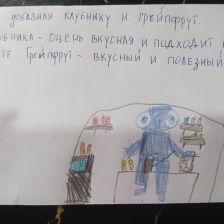 добавили клубнику и грейпфрут.
убника - очень вкусная и подходит к
те. Грейпфрут - вкусный и полезный